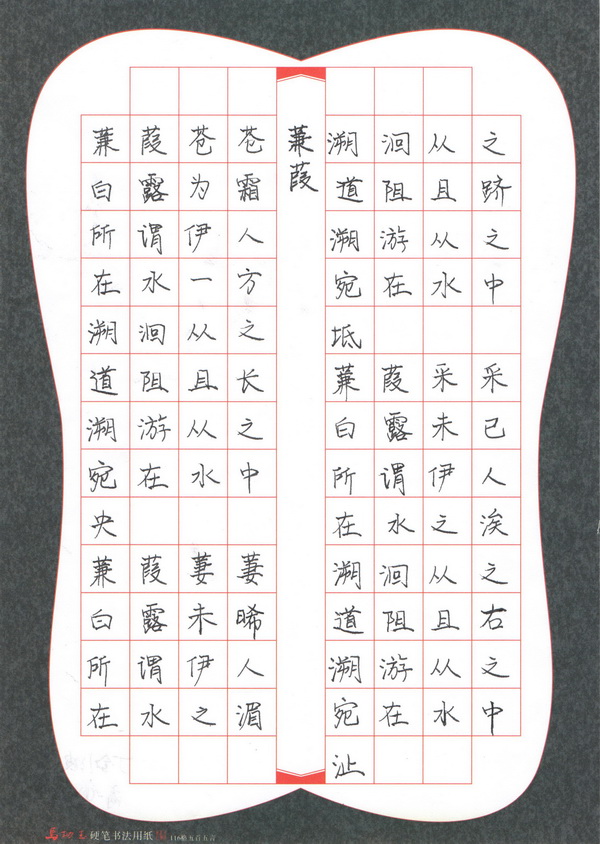 蒹葭
蒹葭苍苍
白露为霜
所谓伊人
在水一方
溯洄从之
道阻且长
溯游从之
宛在水中
央
蒹葭萋萋
白露未晞
所谓伊人
在水之湄
溯洄从之
道阻且跻
溯游从之
宛在水中
坻
蒹葭采采
白露未已
所谓伊人
在水之涘
溯洄从之
道阻且右
溯游从之
宛在水中
沚
硬笔书法用纸